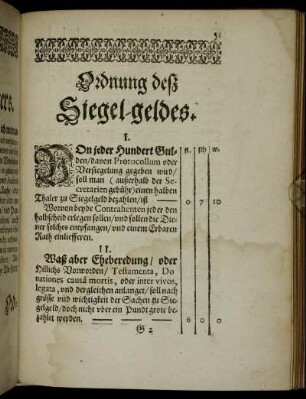 51
Ordnung deß
Siegel-geldes.
I.
VOn jeder Hundert Gul-
den/ davon Protocollum oder
Versiegelung gegeben wird/
soll man (außerhalb der Se-
cretarien gebühr) einen halben
Thaler zu Siegelgeld bezahlen/ ist
fl. ßh w.
0 7 10
Wovon beyde Contrahenten jeder den
halbscheid erlegen sollen/ und soll der Die-
ner solches entpfangen/ und einem Erbaren
Rath einliefferen.
II.
Waß aber Eheberedung/ oder
Hillichs Vorworden/ Testamenta, Do-
nationes causâ mortis, oder inter vivos,
legata, und dergleichen anlanget/ soll nach
grösse und wichtigkeit der Sachen zu Sie-
gelgeld/ doch nicht vber ein Pundt grote be-
zahlet werden.
6 0 0
G 2